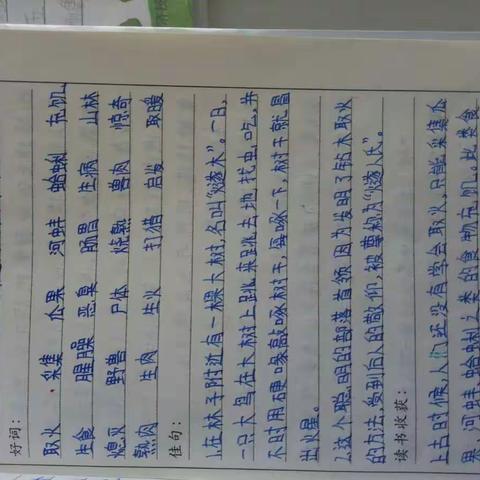 好词：
取火 采集 瓜果 河蚌 蛤蜊 充饥
生食 腥臊 恶臭 肠胃 生病 山林
熄灭 野兽 尸体 烧熟 兽肉 惊奇
熟肉 生肉 生火 打猎 启发 取暖
佳句：
1.在林子附近有一棵大树，名叫“燧木”。一日，
一只大鸟在大树上跳来跳去地找虫吃，并
不时用硬喙敲啄树干，每啄一下，树干就冒
出火星。
2.这个聪明的部落首领因为发明了钻木取火
的方法，受到后人的敬仰，被尊称为“燧人氏”。
读书收获：
上古时候，人们还没有学会取火，只能采集瓜
果、河蚌、蛤蜊之类的食物充饥。此类食